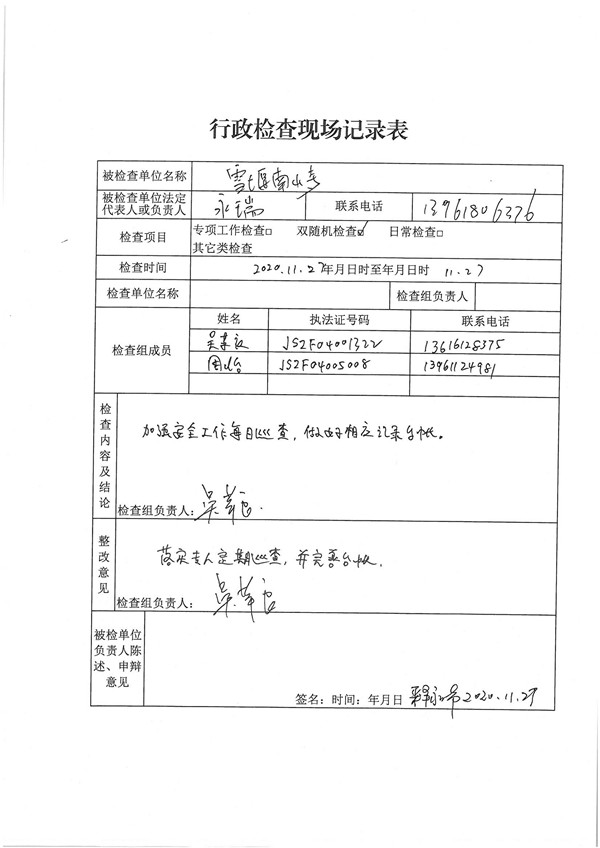 行政检查现场记录表
被检查单位名称 雪堰南山寺
被检查单位法定
代表人或负责人 永瑞 联系电话 13961806376
检查项目 专项工作检查□ 双随机检查☑ 日常检查□
其它类检查
检查时间 2020.11.27年月日时至年月日时 11.27
检查单位名称 检查组负责人
检查组成员 姓名 执法证号码 联系电话
JSZF04001322 13616128375
JSZF04005008 13961124981
检查内容及结论
加强安全工作每日巡查,做好相应记录台帐。
检查组负责人:
整改意见
落实专人定期巡查,并完善台帐。
检查组负责人:
被检单位
负责人陈
述、申辩
意见
签名:时间:年月日 2020.11.27